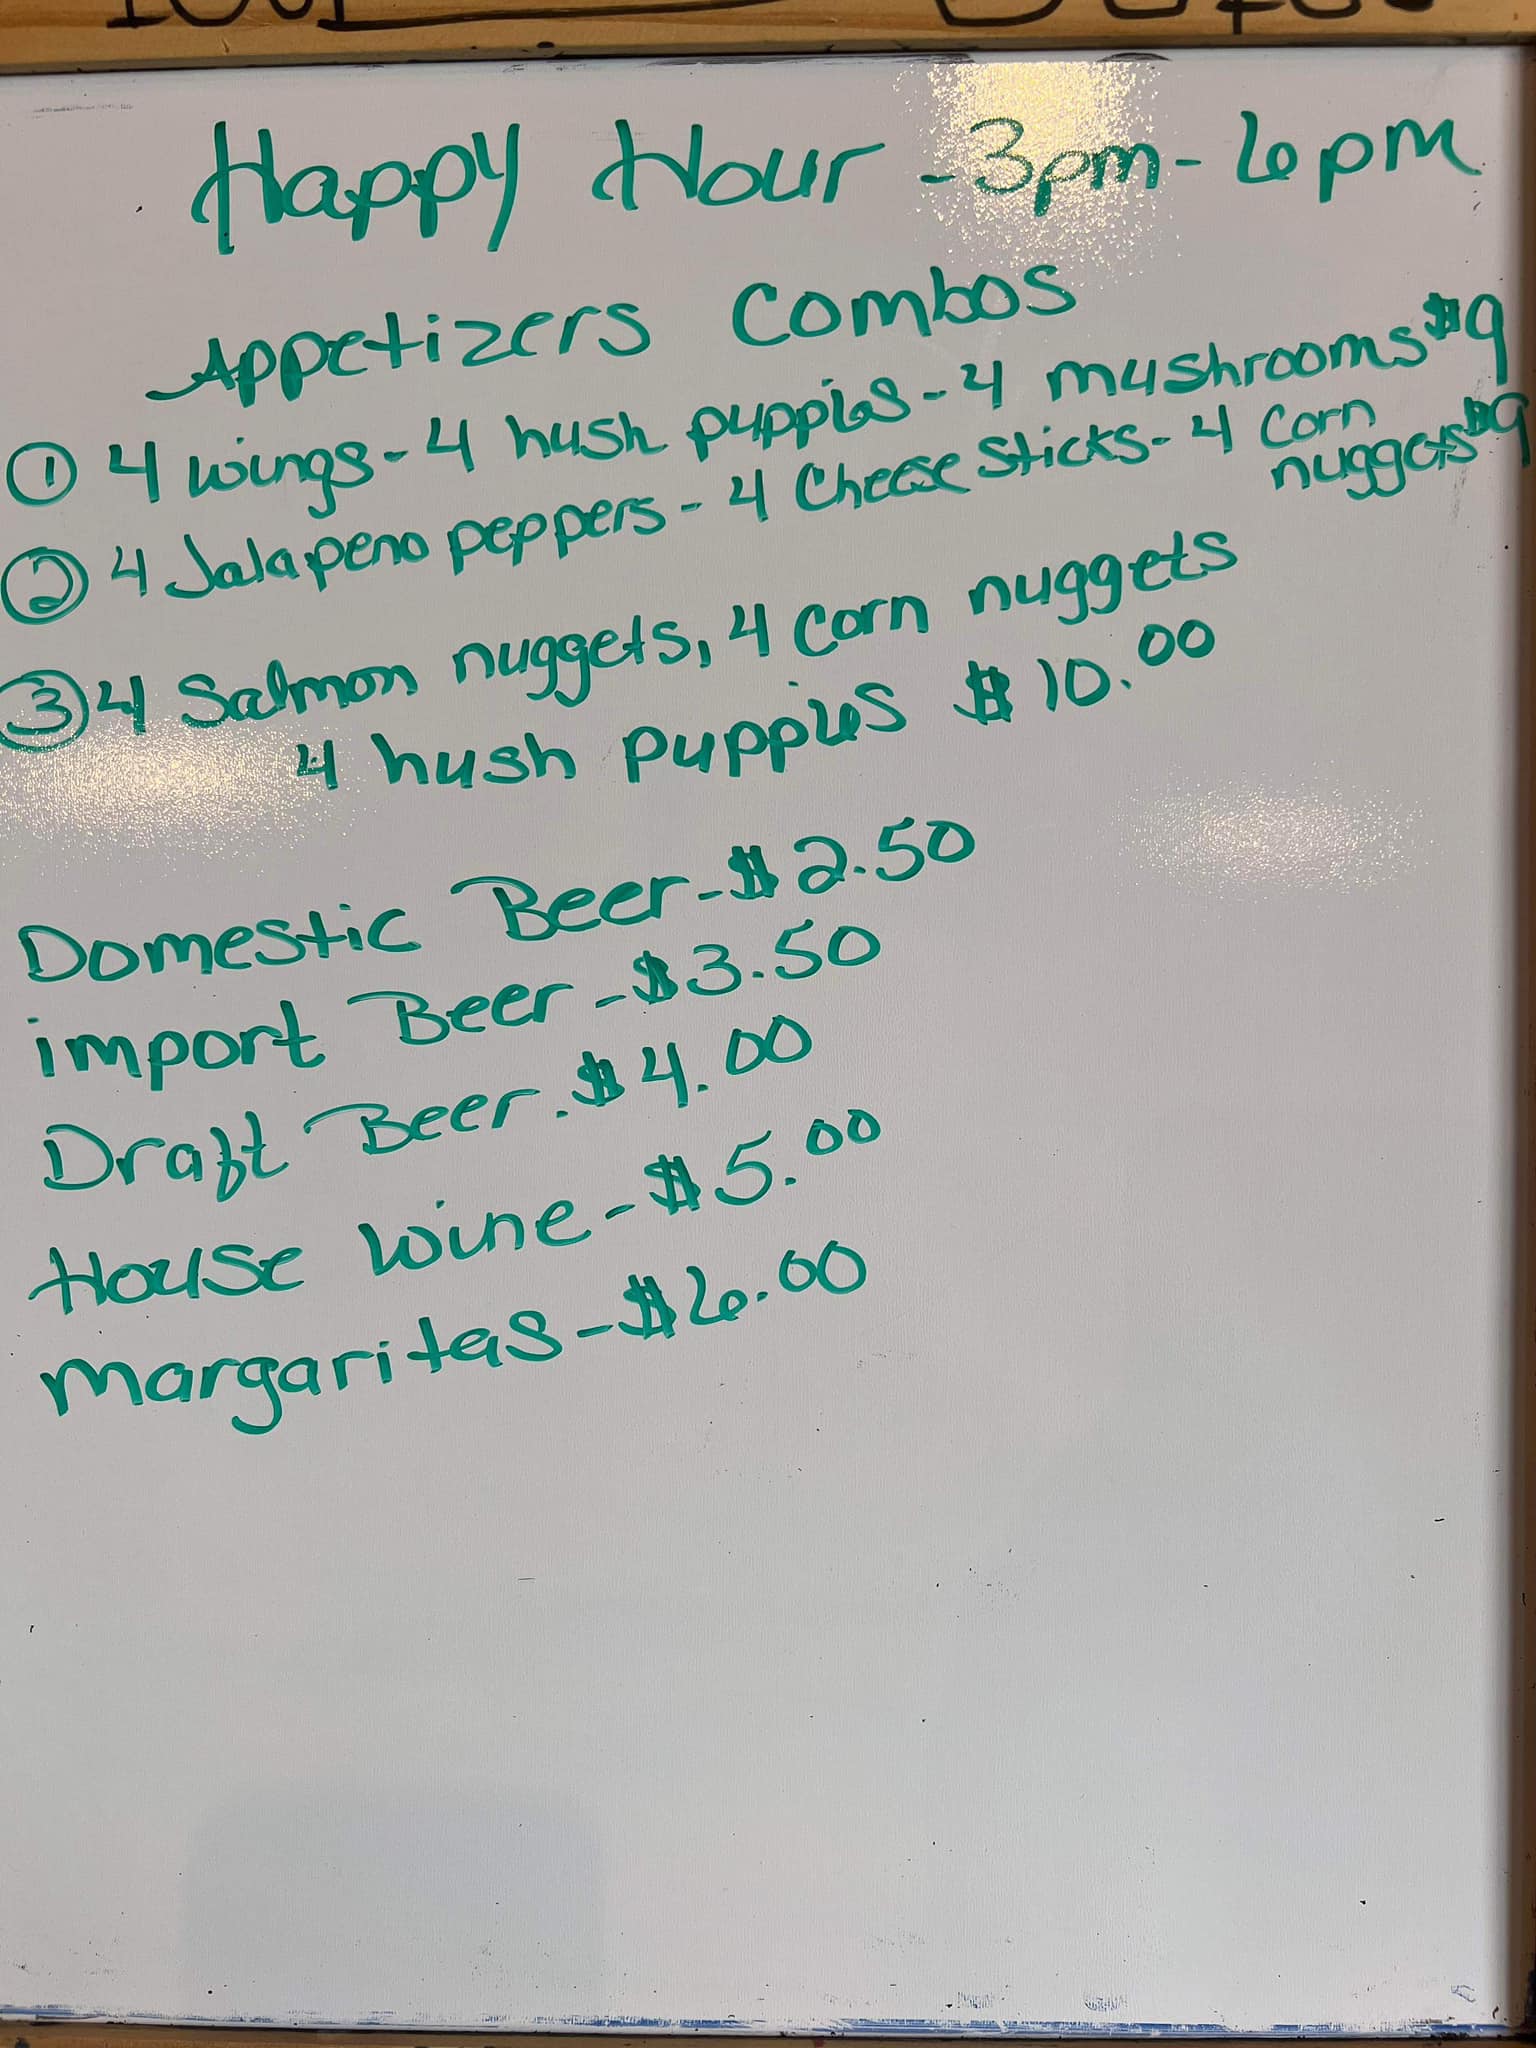 Happy Hour - 3pm - 6pm
Appetizers Combos
① 4 wings - 4 hush puppies - 4 mushrooms $9
② 4 Jalapeno peppers - 4 Cheese sticks - 4 Corn
nuggets $9
③ 4 Salmon nuggets, 4 Corn nuggets
4 hush puppies $10.00
Domestic Beer - $2.50
import Beer - $3.50
Draft Beer. $4.00
House wine - $5.00
margaritas - $6.00